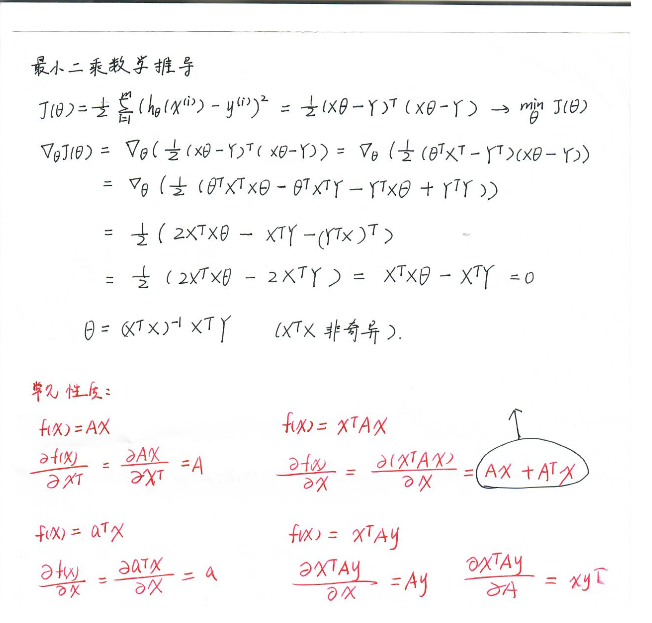 最小二乘数学推导
J(θ) = 1/2 Σ_{i=1}^{m} (h_θ(x^{(i)}) - y^{(i)})^2 = 1/2 (Xθ-Y)^T (Xθ-Y) → min_θ J(θ)
∇_θ J(θ) = ∇_θ (1/2 (Xθ-Y)^T (Xθ-Y)) = ∇_θ (1/2 (θ^T X^T - Y^T)(Xθ-Y))
= ∇_θ (1/2 (θ^T X^T Xθ - θ^T X^T Y - Y^T Xθ + Y^T Y))
= 1/2 (2X^T Xθ - X^T Y - (Y^T X)^T)
= 1/2 (2X^T Xθ - 2X^T Y) = X^T Xθ - X^T Y = 0
θ = (X^T X)^{-1} X^T Y (X^T X 非奇异).
常见性质:
f(X) = AX
∂f(X)/∂X^T = ∂AX/∂X^T = A
f(X) = X^T A X
∂f(x)/∂X = ∂(X^T A X)/∂X = AX + A^T X
f(X) = a^T X
∂f(x)/∂X = ∂a^T X/∂X = a
f(X) = X^T A y
∂X^T A y/∂X = Ay ∂X^T A y/∂A = xy^T